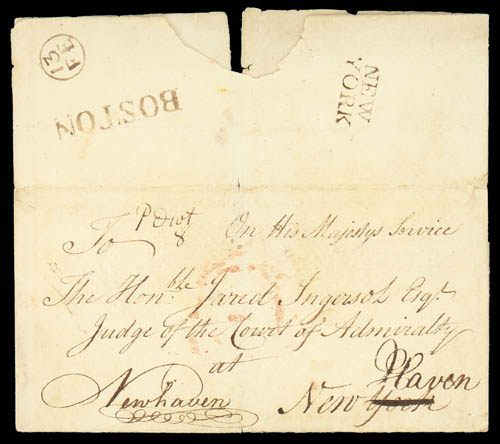 13
FE
BOSTON
NEW
YORK
Pdwt
8
To
On His Majestys Service
The Hon.ble Jared Ingersol Esqr.
Judge of the Court of Admiralty
at
Newhaven
New York
Haven